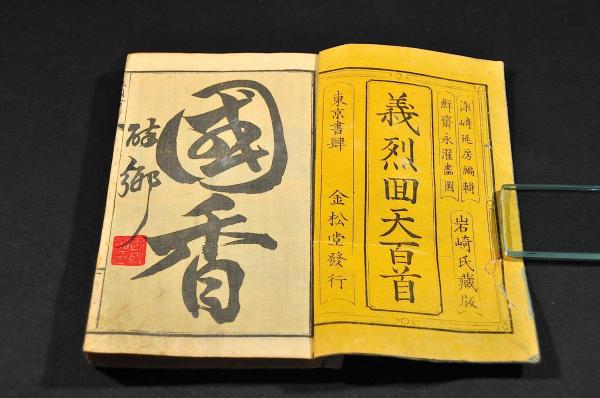 染崎延房編輯
鮮齋永濯畫圖
岩崎氏藏版
義烈回天百首
東京書肆
金松堂發行
國香